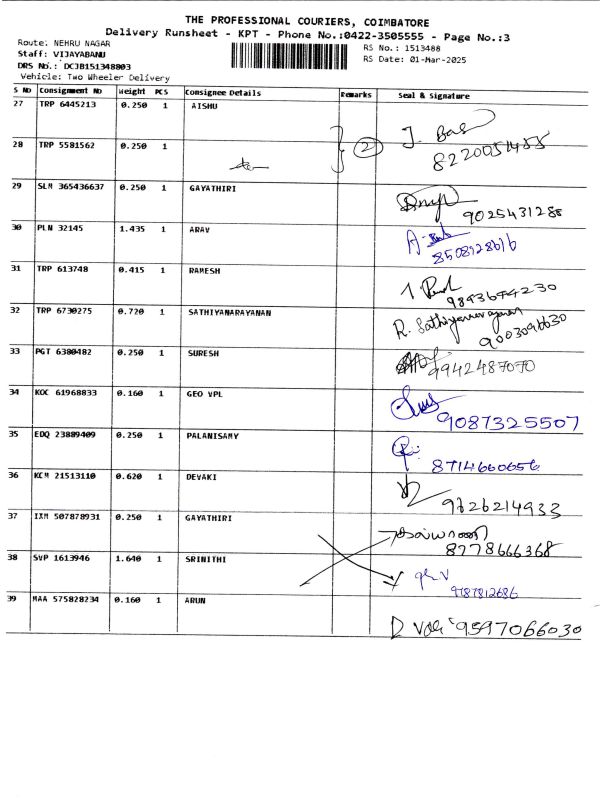 THE PROFESSIONAL COURIERS, COIMBATORE
Delivery Runsheet - KPT - Phone No.:0422-3505555 - Page No.:3
Route: NEHRU NAGAR
RS No. : 1513488
Staff: VIJAYABANU
RS Date: 01-Mar-2025
DRS No.: DCJB151348803
Vehicle: Two Wheeler Delivery
S No Consignment No Weight PCS Consignee Details Remarks Seal & Signature
27 TRP 6445213 0.250 1 AISHU
28 TRP 5581562 0.250 1 2
29 SLM 365436637 0.250 1 GAYATHIRI
9025431288
30 PLN 32145 1.435 1 ARAV
8508128616
31 TRP 613748 0.415 1 RAMESH
32 TRP 6730275 0.720 1 SATHIYANARAYANAN
R. Sathiyanarayanan
9003096630
33 PGT 6380482 0.250 1 SURESH
9942487070
34 KOC 61968833 0.160 1 GEO VPL
9087325507
35 EDQ 23889409 0.250 1 PALANISAMY
8714660656
36 KCM 21513110 0.620 1 DEVAKI
9626214933
37 IXM 507878931 0.250 1 GAYATHIRI
8778666368
38 SVP 1613946 1.640 1 SRINITHI
9787812686
39 MAA 575828234 0.160 1 ARUN
9597066030